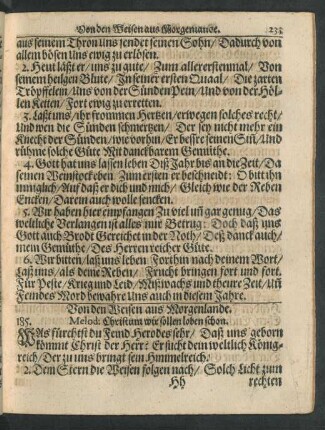 Von den Weisen aus Morgenlande. 233
aus seinem Thron uns sendet seinen Sohn/ Dadurch von
allem bösen Uns ewig zu erlösen.
2. Heut läst er/ uns zu gute/ Zum aller erstenmal/ Von
seinem heilgen Blute/ In seiner ersten Quaal/ Die zarten
Tröpfselein/ Uns von der Sünden Pein/ Und von der Höl-
len Ketten/ Fort ewig zu erretten.
3. Last uns/ ihr frommen Hertzen/ erwegen solches recht/
Und wen die Sünden schmertzen/ Der sey nicht mehr ein
Knecht der Sünden/ wie vorhin/ Er bessre seinen Sin/ Und
rühme solche Güte Mit danckbarem Gemüthe.
4. Gott hat uns lassen leben Diß Jahr biß an die Zeit/ Da
seinen Weinstock eben Zum ersten er beschneidt: O bitt ihn
inniglich/ Auf daß er dich und mich/ Gleich wie der Reben
Encken/ Darein auch wolle sencken.
5. Wir haben hier empfangen Zu viel uñ gar genug/ Das
weltliche Verlangen ist alles nur Betrug: Doch daß uns
Gott auch Brodt Gereichet in der Noth/ Deß danck auch/
mein Gemüthe/ Des Herren reicher Güte.
6. Wir bitten/ laß uns leben Forthin nach deinem Wort/
Laß uns/ als deine Reben/ Frucht bringen fort und fort.
Für Peste/ Krieg und Leid/ Mißwachs und theure Zeit/ Uñ
Feindes Mord bewahre Uns auch in diesem Jahre.
Von den Weisen aus Morgenlande.
185. Melod: Christum wir sollen loben schon.
Was fürchst du Feind Herodes sehr/ Daß uns geborn
kömmt Christ der Herr? Er sucht kein weltlich König-
reich/ Der zu uns bringt sein Himmelreich.
2. Dem Stern die Weisen folgen nach/ Solch Licht zum
Hh rechten